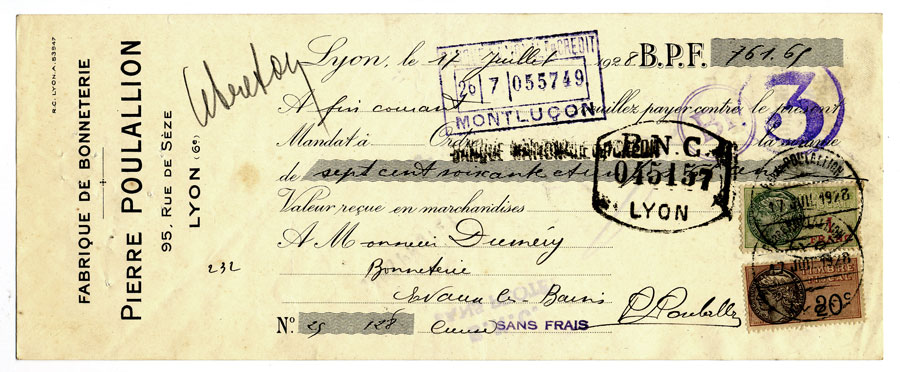 R.C. LYON A. 53947
FABRIQUE DE BONNETERIE
PIERRE POULALLION
95, RUE DE SÈZE
LYON (6e)
Lyon, le 17 Juillet 1928 B.P.F. 761.65
CREDIT
20 7 055749
MONTLUÇON
3
A fin courant veuillez payer contre le présent
Mandat à Ordre la somme
BANQUE NATIONALE DE CREDIT
B.N.C.
045157
LYON
de sept cent soixante et un
Valeur reçue en marchandises
A Monsieur Duméry
Bonneterie
232
Evaux les Bains
Creuse
SANS FRAIS
No 25 128
P. Poulallion
POULALLION
17 JUIL 1928
1 FRANC
17 JUIL 1928
20c